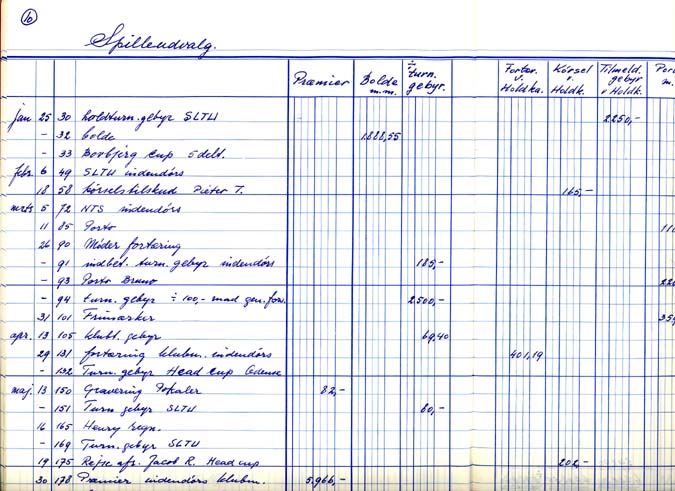 10
Spilleudvalg.
Præmier Bolde m.m. ÷ turn. gebyr. Fortær. v. Holdka. Körsel v. Holdk. Tilmeld. gebyr v Holdk. m.
jan 25 30 holdturn. gebyr SLTU 2250,-
- 32 bolde 1.888,55
- 33 Bovbjerg Cup 5 delt.
febr. 6 49 SLTU indendörs
18 58 körselstilskud Pieter T. 165,-
mrts 5 72 NTS indendörs
11 85 Porto 110
26 90 Möder fortæring
- 91 indbet. turn. gebyr indendörs 185,-
- 93 Porto Bruno 220
- 94 turn. gebyr ÷ 100,- mad gen. fors. 2500,-
31 101 Frimærker 350
apr. 13 105 klubt. gebyr 69,40
29 131 fortæring klubm. indendörs 401,19
- 132 Turn. gebyr Head Cup Odense
maj 13 150 Gravering Pokaler 82,-
- 151 Turn gebyr SLTU 80,-
16 165 Henry regn.
- 169 Turn. gebyr SLTU
19 175 Rejse afs. Jacob R. Head cup 202,-
30 178 Præmier indendörs klubm. 5.966,-